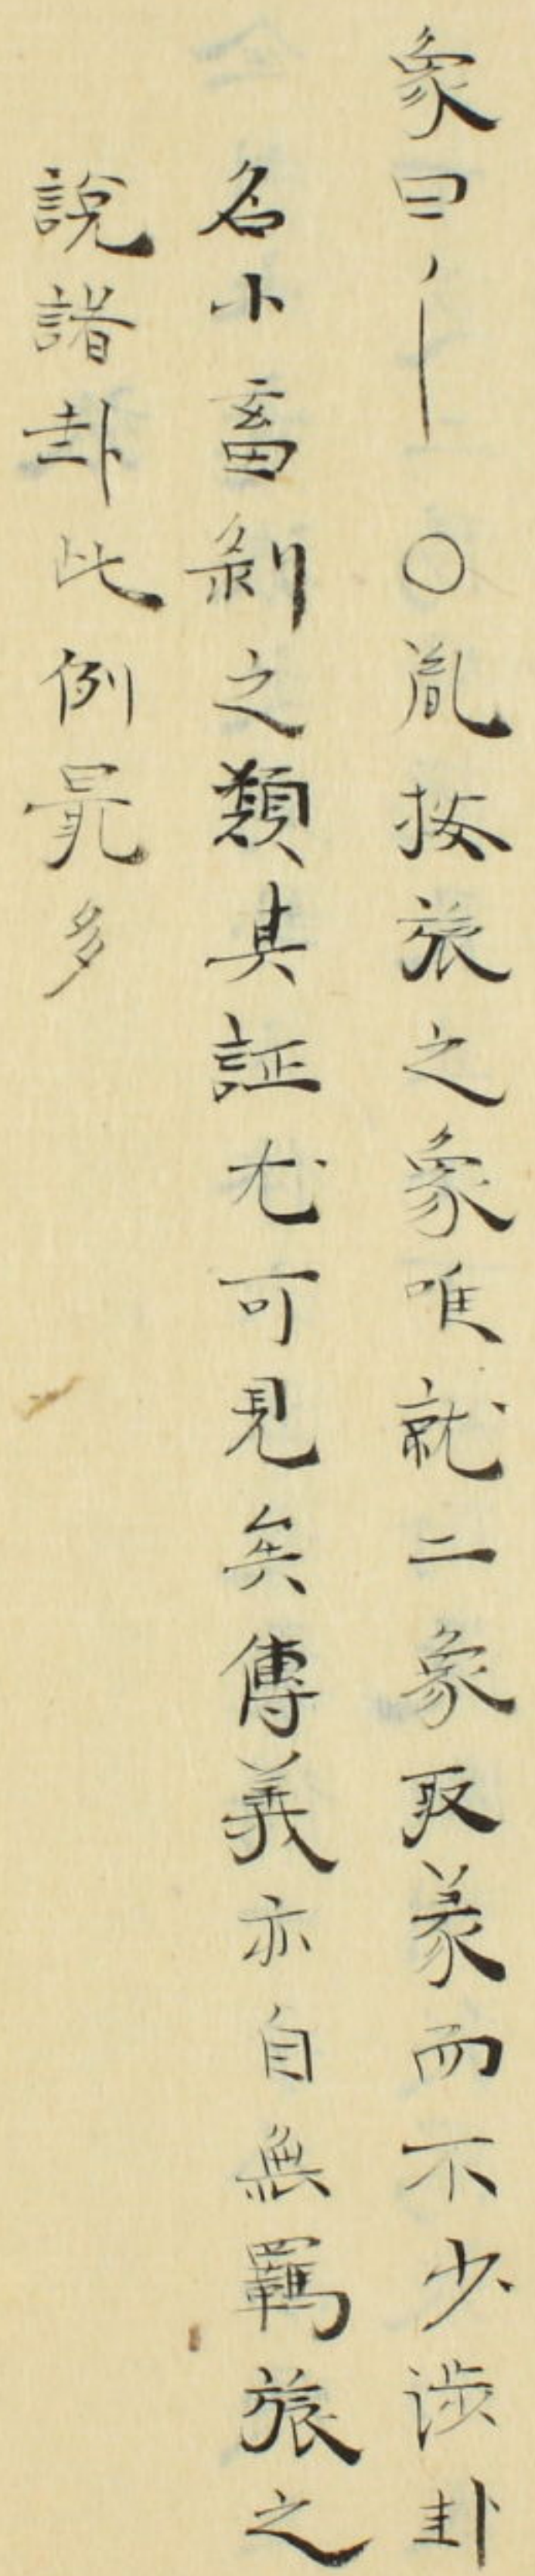 象曰〡○胤按旅之象唯就二象取義而不少渉卦
名小畜剝之類其証尤可見矣傳義亦自無羈旅之
說諸卦比例最多